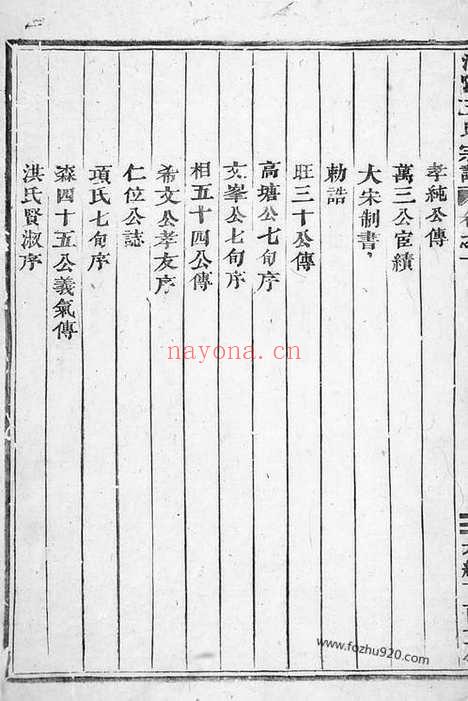 孝純公傳
萬三公宦績
大宋制書
勅誥
旺三十公傳
高塘公七旬序
文峯公七旬序
相五十四公傳
希文公孝友序
仁位公誌
項氏七旬序
森四十五公義氣傳
洪氏賢淑序
nayona.cn
www.fozhu920.com